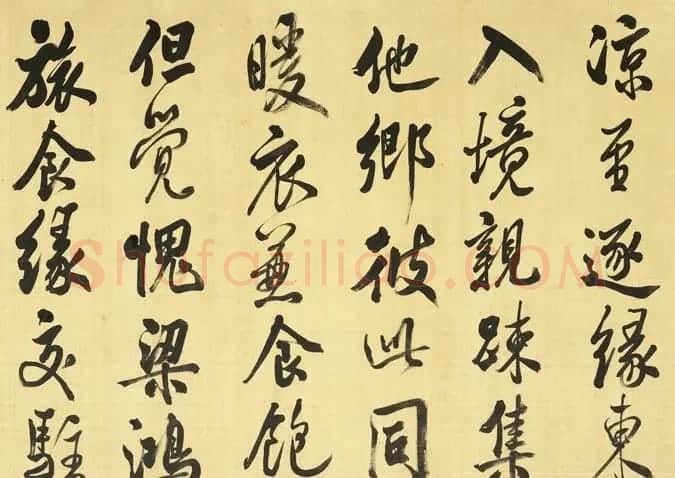 凉至逐緣東
入境親踈集
他鄉彼此同
暖衣兼食飽
但覺愧梁鴻
旅食緣交駐
Shufaziliao.COM